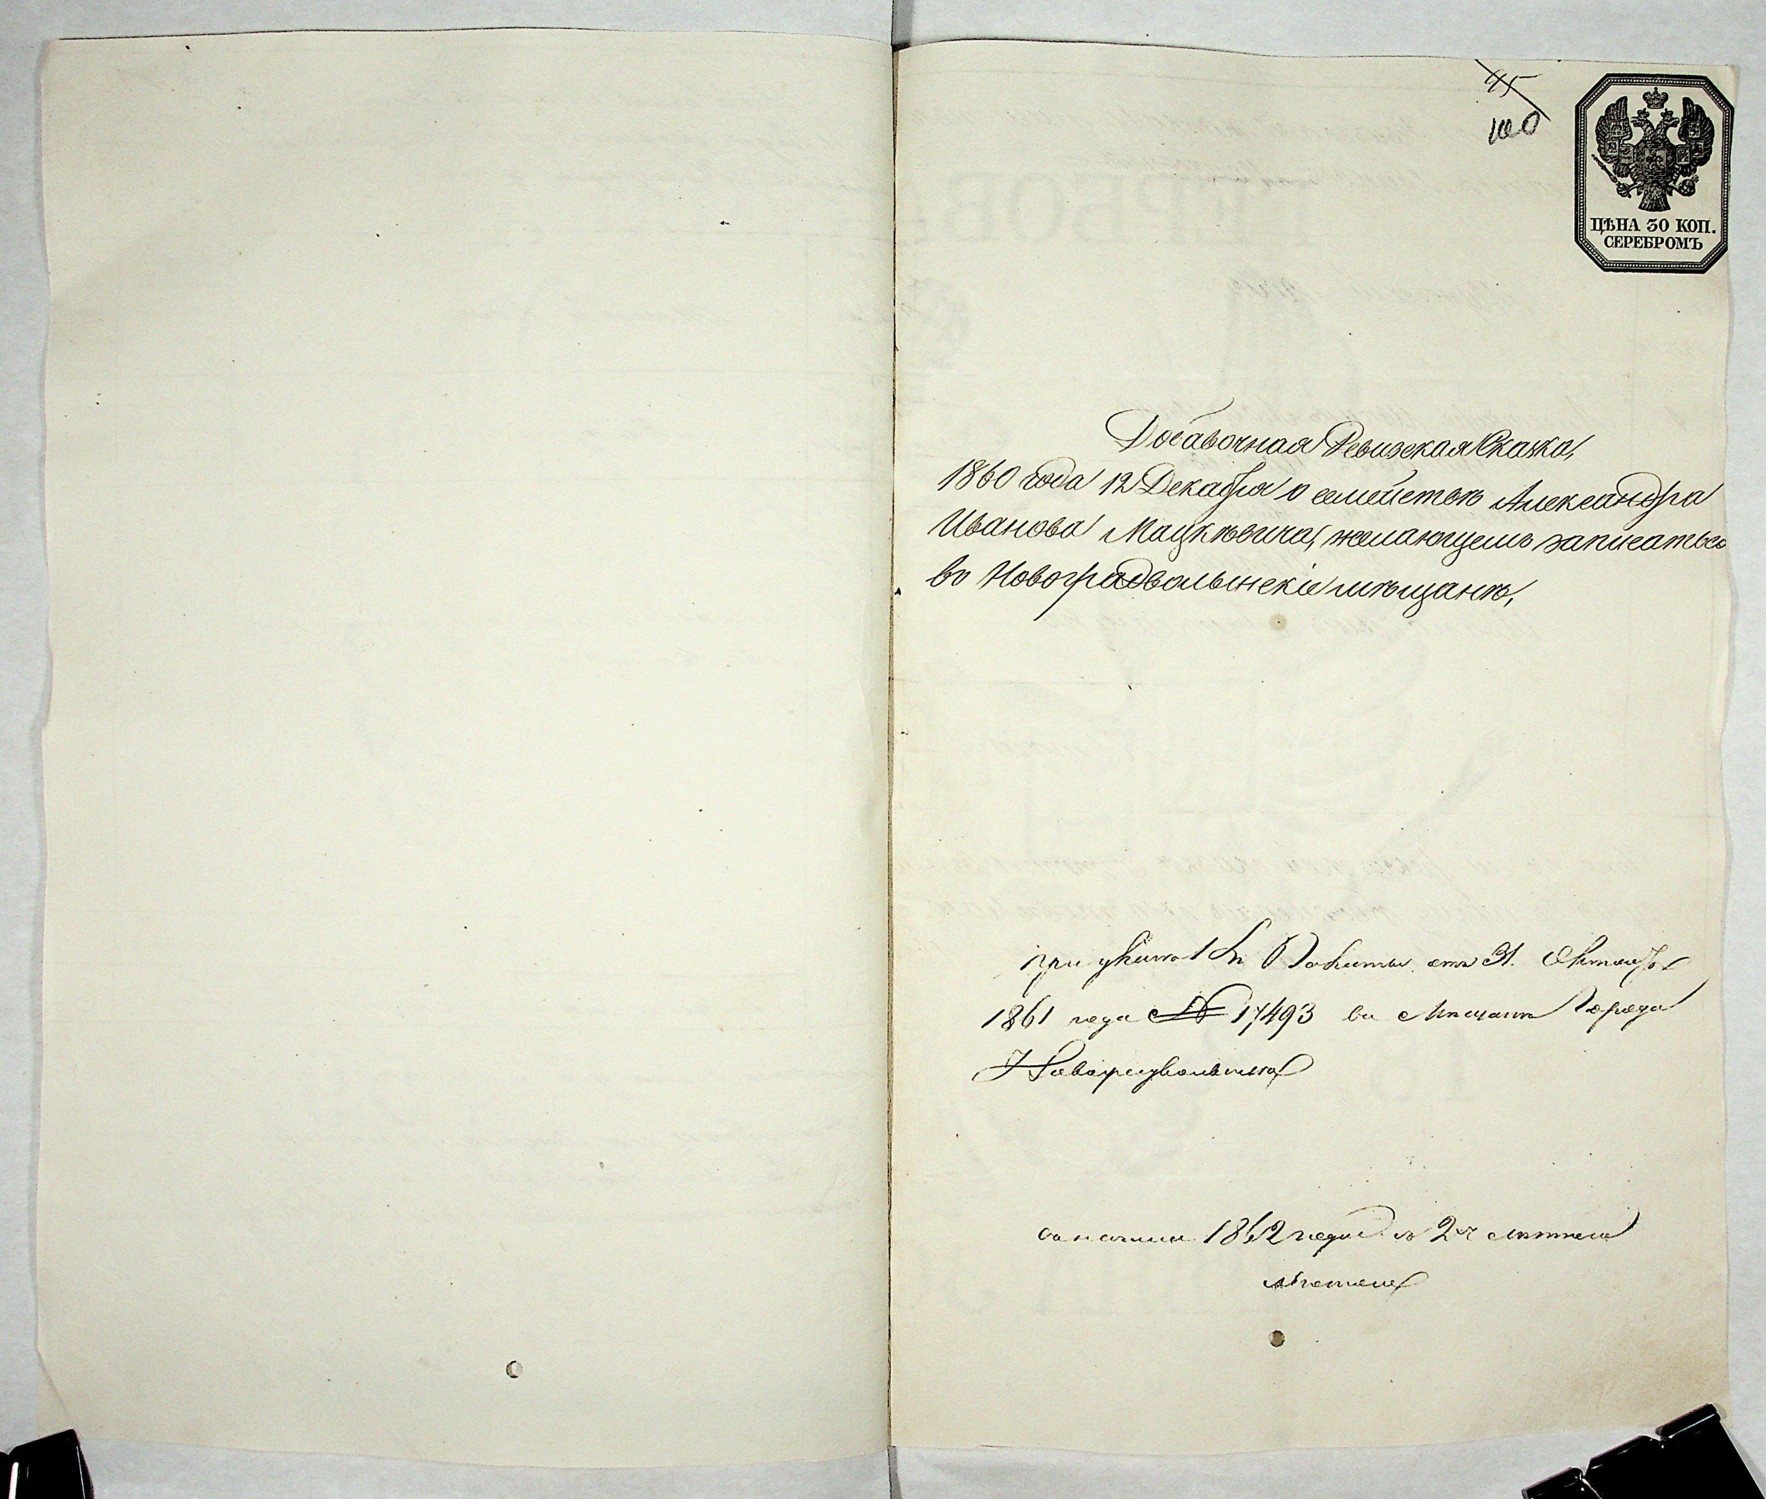 45
100
ЦѢНА 30 КОП.
СЕРЕБРОМЪ
Добавочная Ревизская Сказка,
1860 года 12 Декабря о семействѣ Александра
Иванова Мацкѣвича, желающемъ записаться
въ Новоградволынскіе мѣщане,
при указѣ отъ 31. Октября
1861 года № 17493 въ Мѣщане Города
Новоградволынска
1862 года